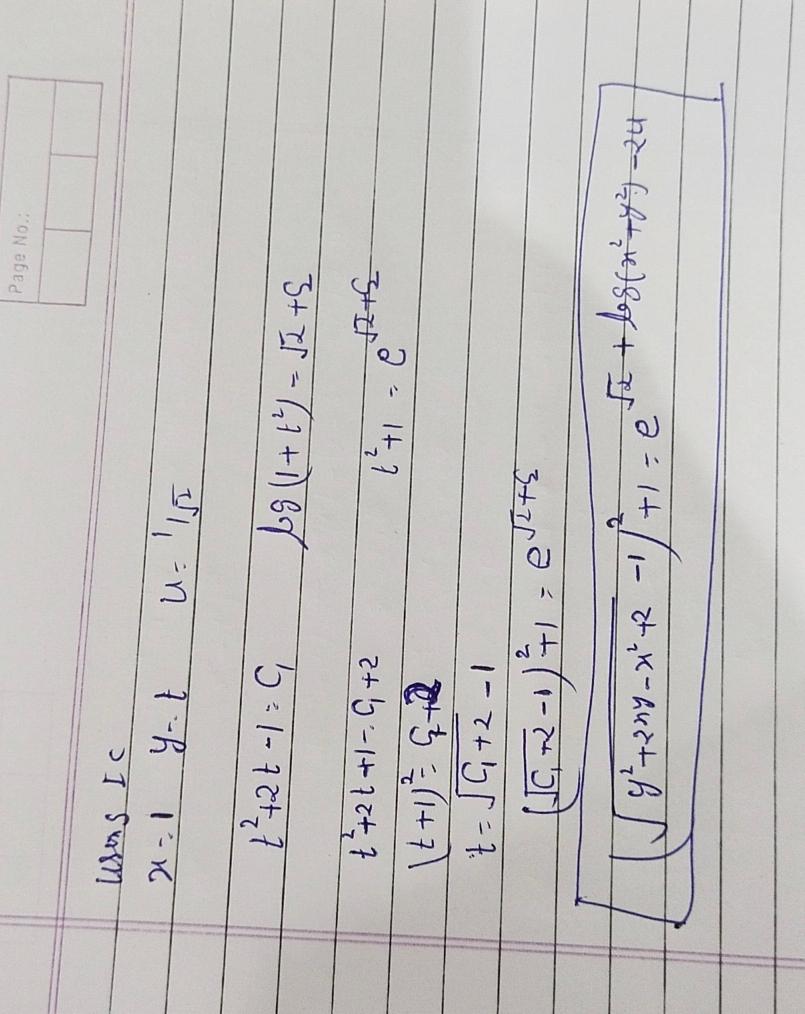 Page No.:
Using I C
x = 1 y = t u = 1/√2
t² + 2t - 1 = C₁ log(1 + t²) = √2 + C₂
t² + 2t + 1 = C₁ + 2 t² + 1 = e^(√2 + C₂)
(t + 1)² = C₁ + 2
t = √(C₁ + 2) - 1
(√(C₁ + 2) - 1)² + 1 = e^(√2 + C₂)
(√(y² + 2xy - x² + 2) - 1)² + 1 = e^(√2 + log(x² + y²) - 2u)